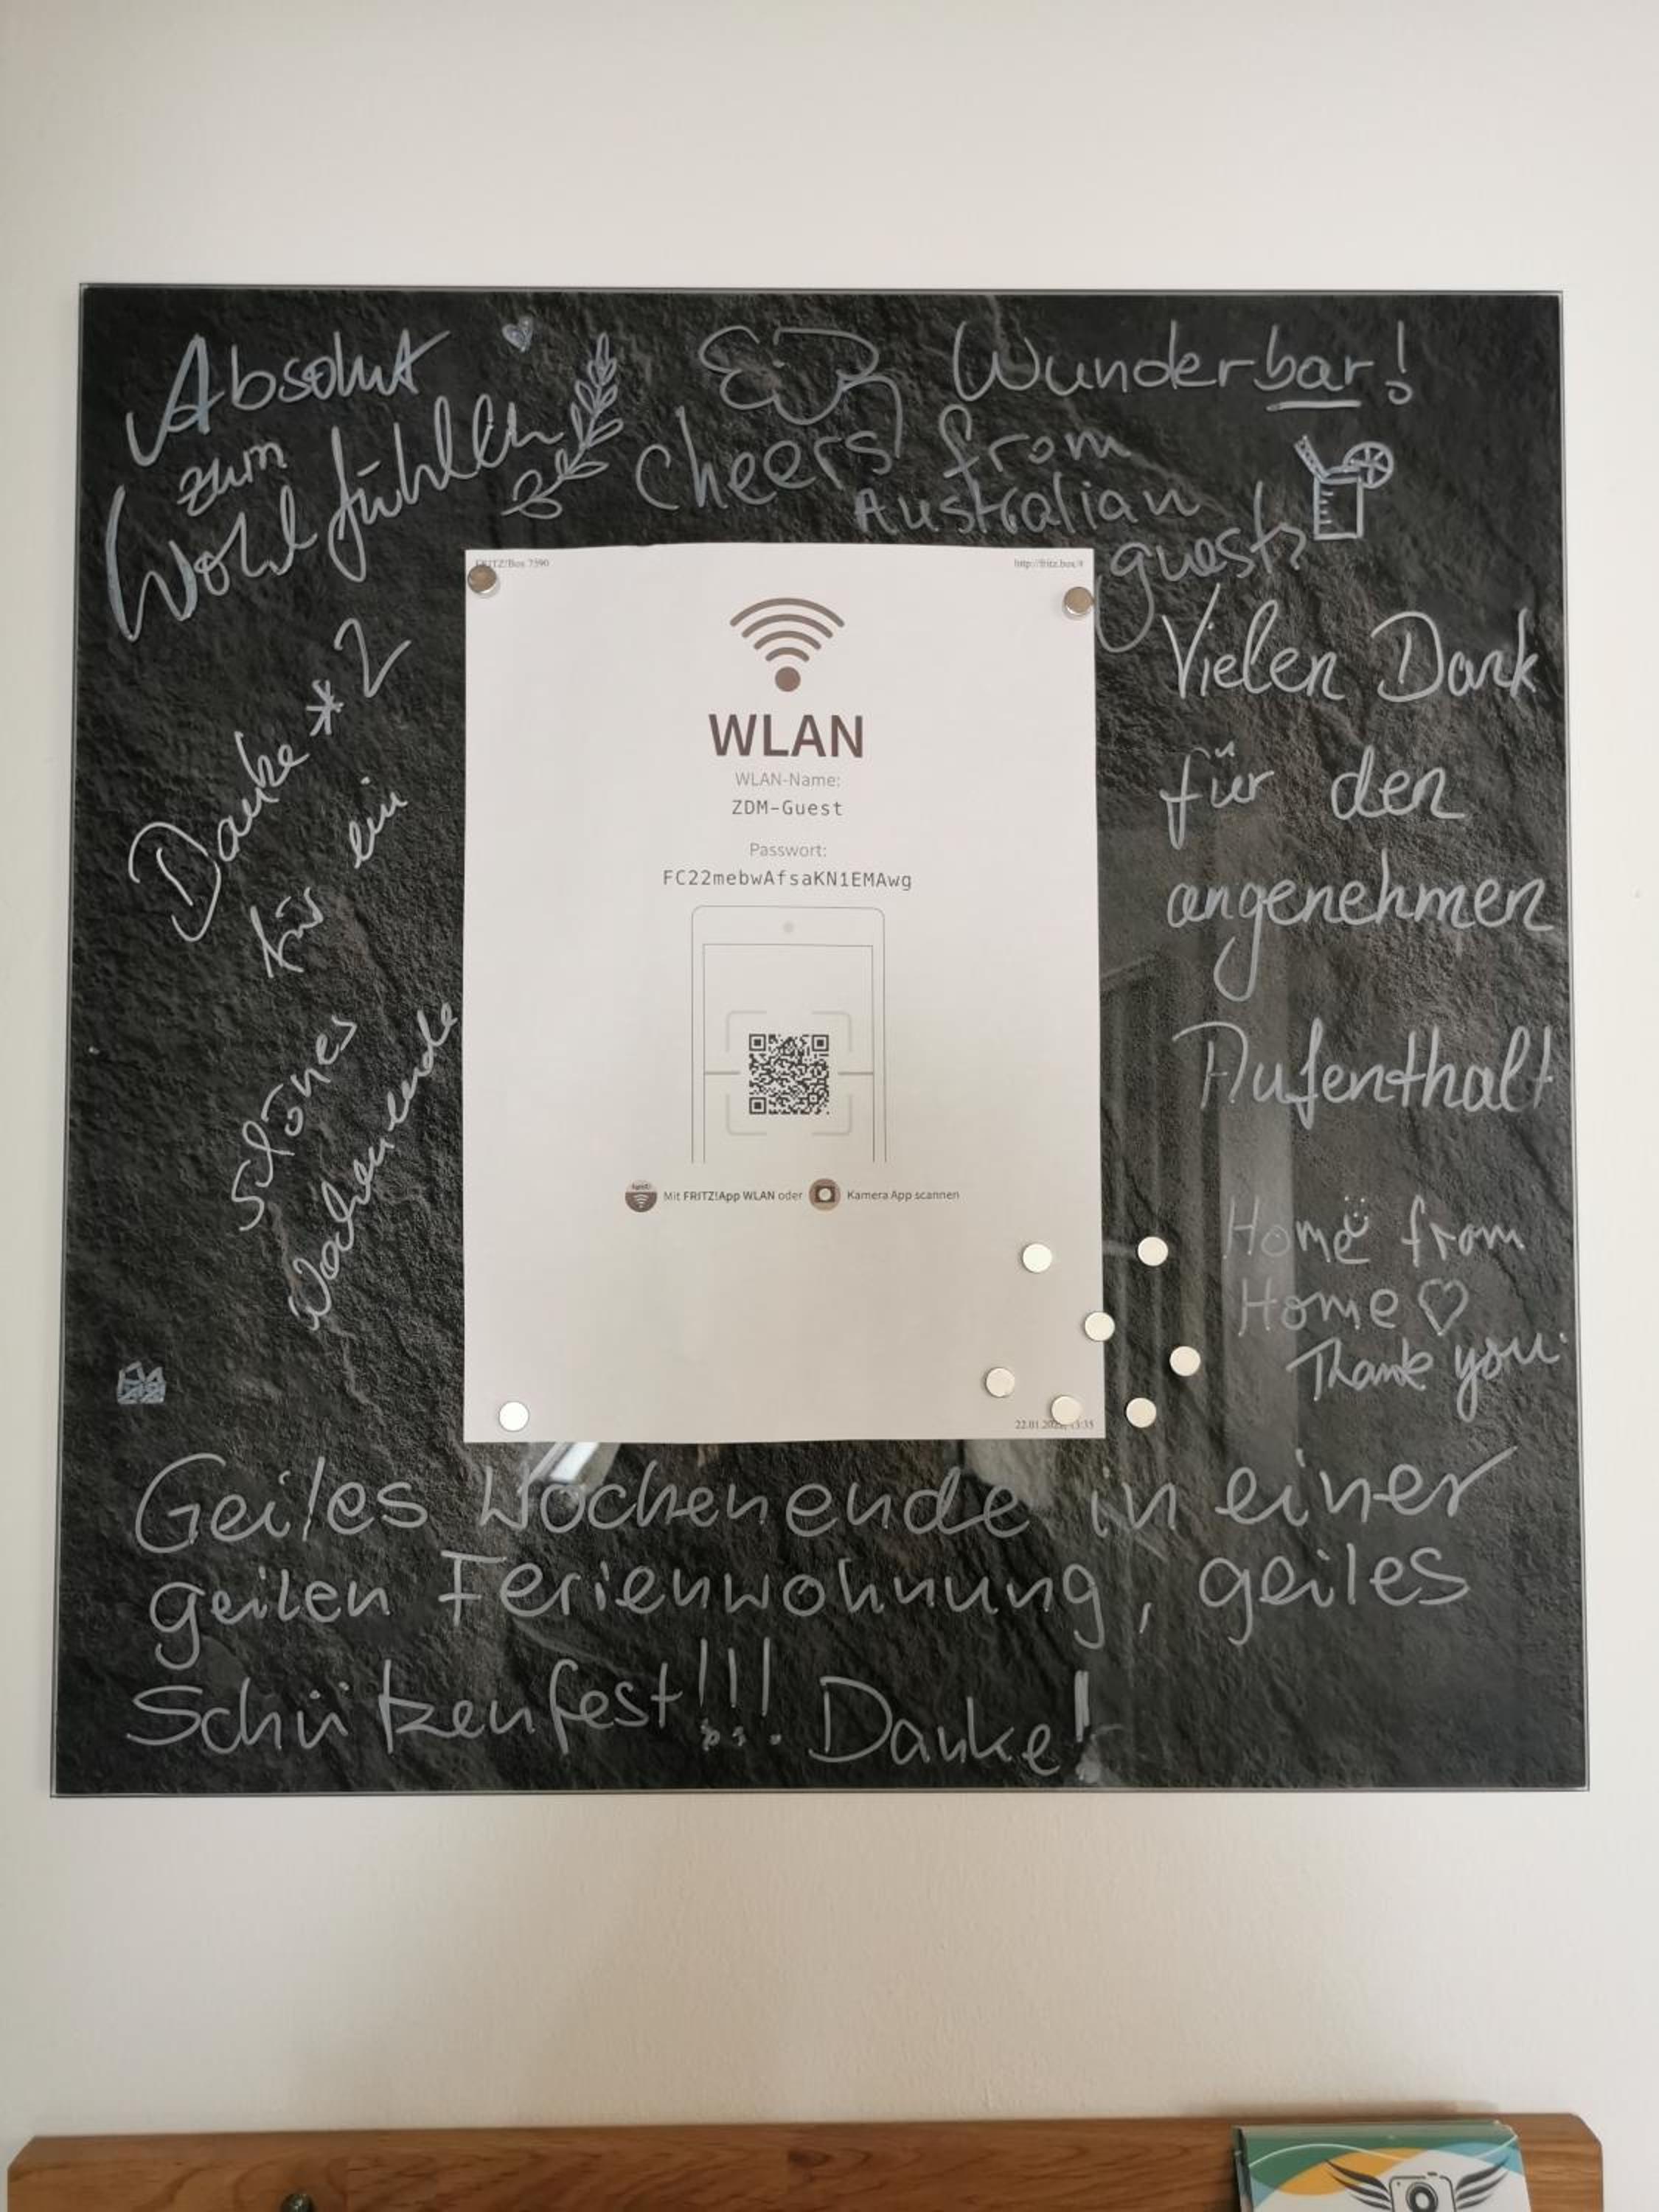 Absolut
zum
Wohlfühlen
Wunderbar!
Cheers from
Australian
guests
FRITZ!Box 7590
http://fritz.box/#
WLAN
WLAN-Name:
ZDM-Guest
Passwort:
FC22mebwAfsaKN1EMAwg
Mit FRITZ!App WLAN oder
Kamera App scannen
Danke * 2
für ein
schönes
Wochenende
Vielen Dank
für den
angenehmen
Aufenthalt
Home from
Home
Thank you
Geiles Wochenende in einer
geilen Ferienwohnung, geiles
Schützenfest!!! Danke!